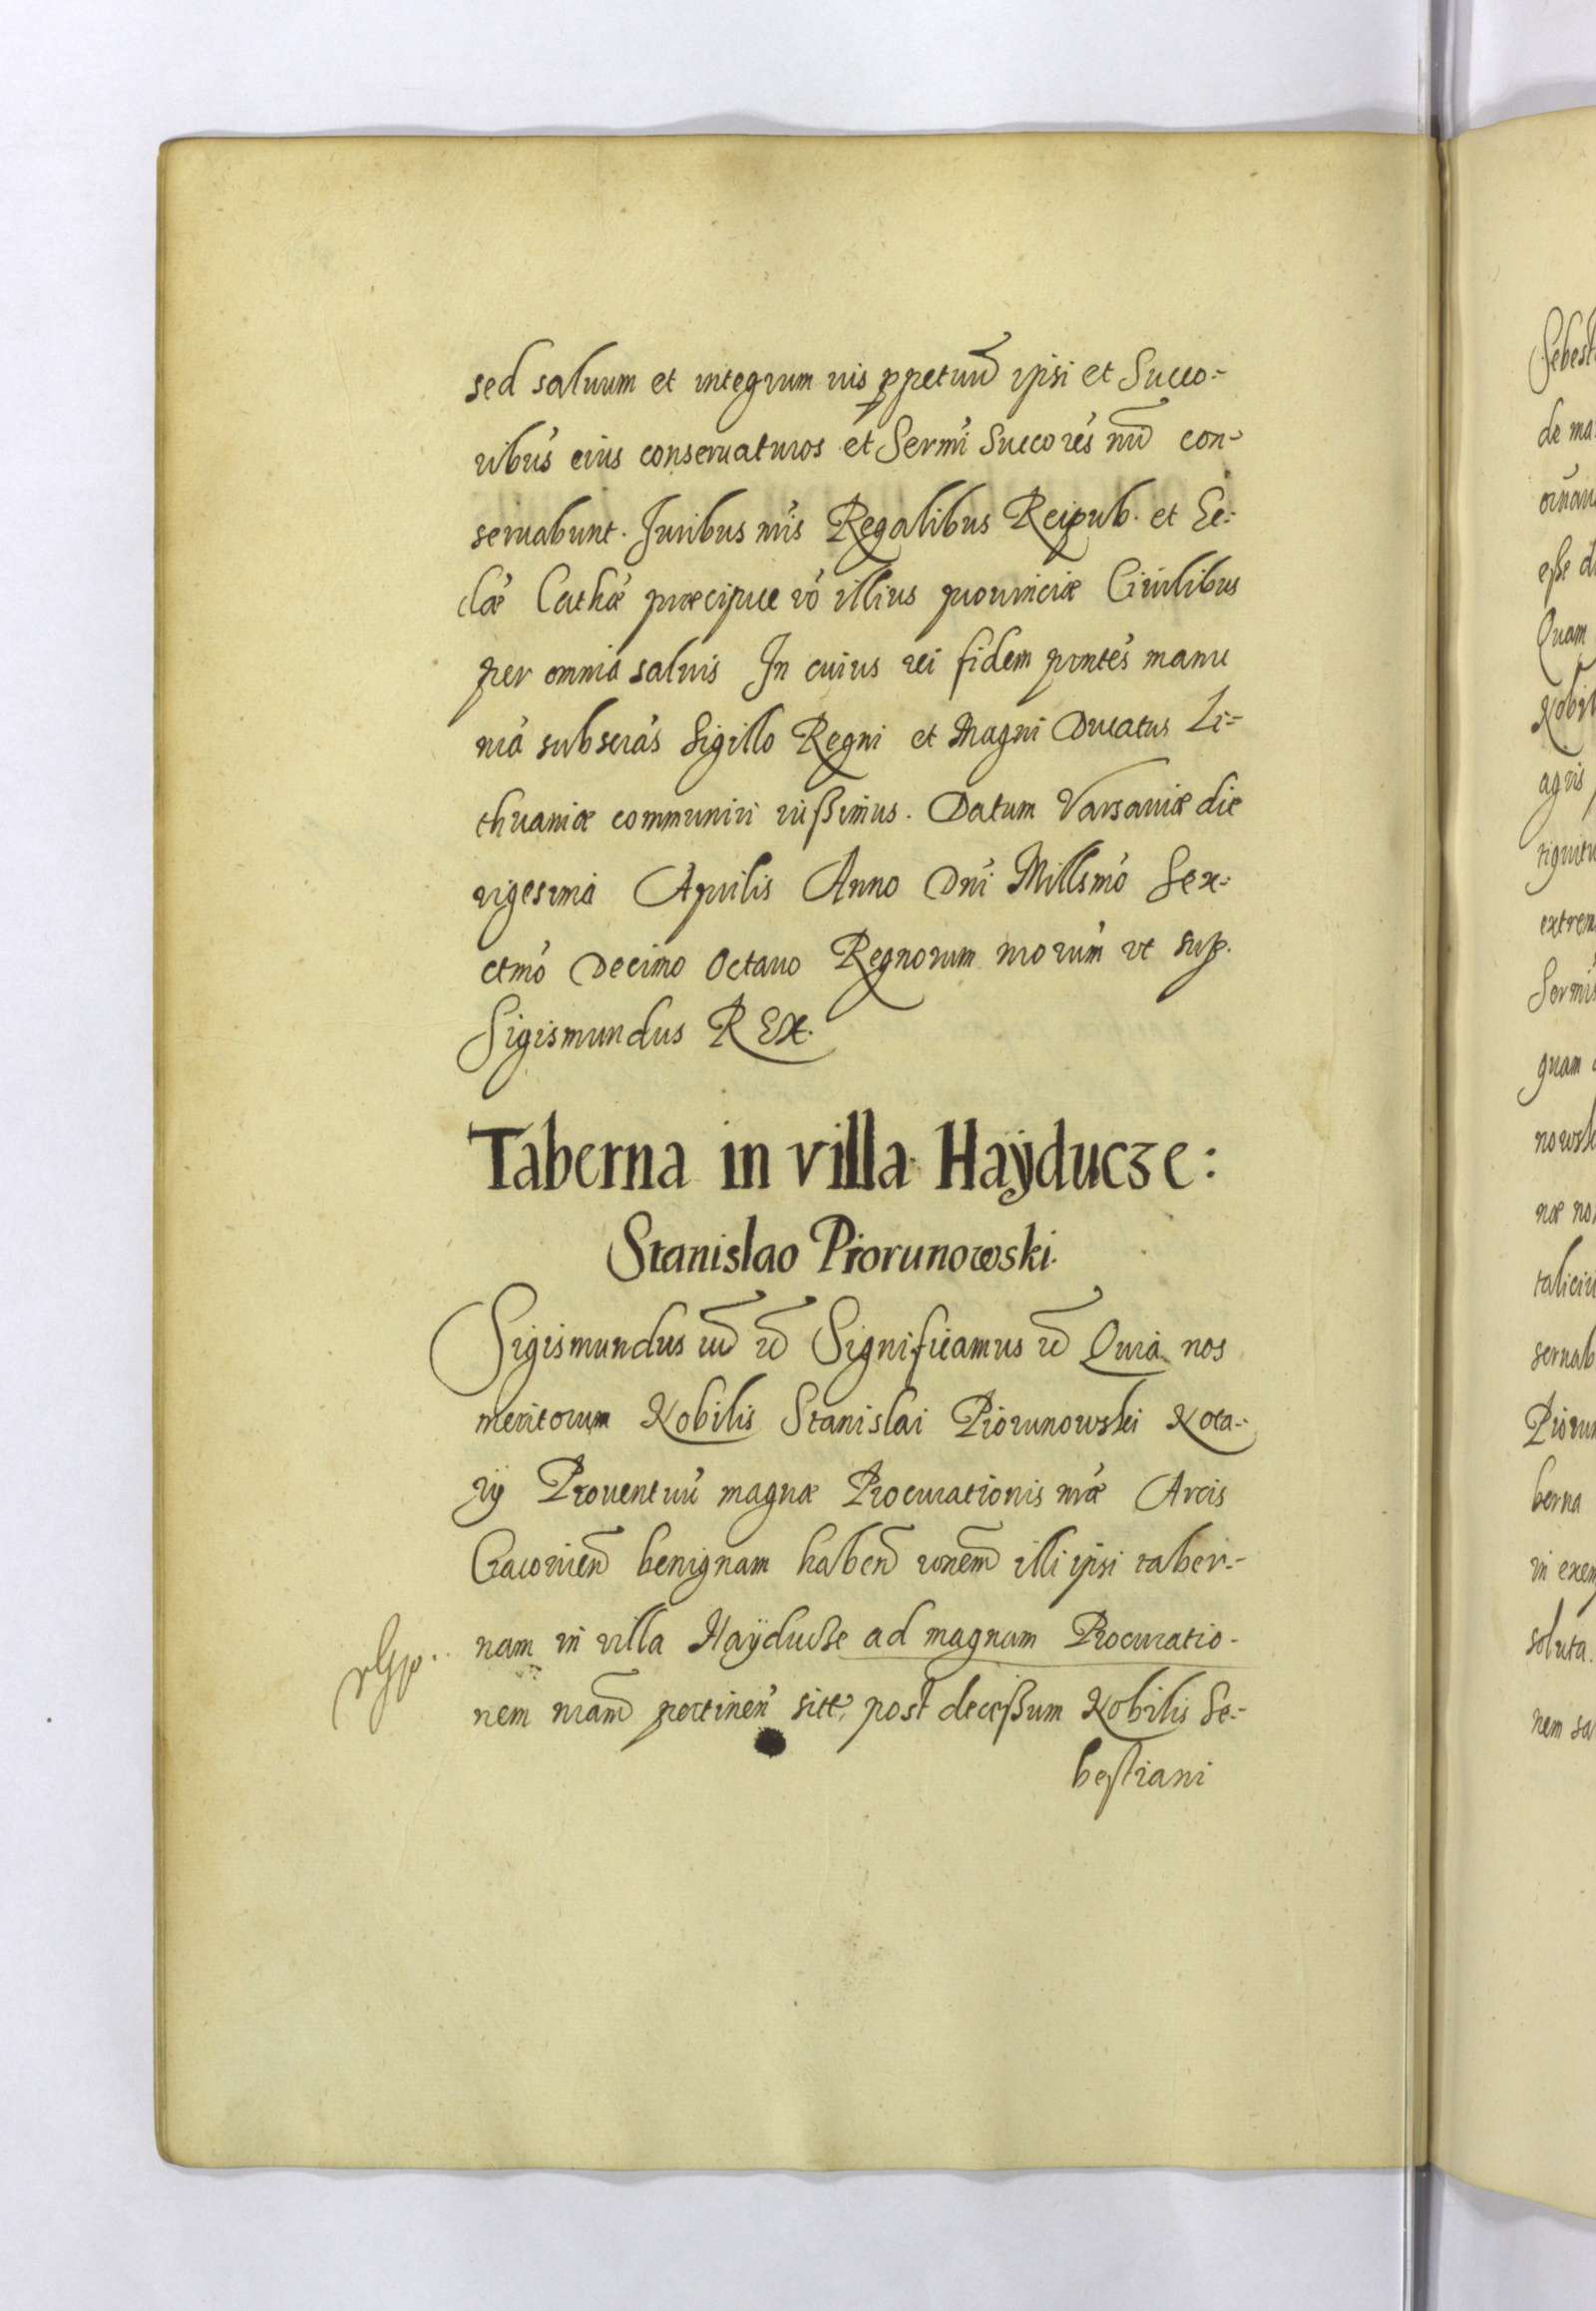 sed saluum et integrum ius ppetuũ ipsi et Succo-
ribus eius conseruaturos et Sermi Succores nrĩ con-
seruabunt. Iuribus nris Regalibus Reipub. et Ec-
clæ Cathæ præcipue vo illius prouinciæ Ciuilibus
per omnia saluis In cuius rei fidem pn̄tes manu
nra subscras Sigillo Regni et Magni Ducatus Li-
thuaniæ communiri iußimus. Datum Varsauiæ die
vigesima Aprilis Anno Dni Millsmo Sex-
ctmo Decimo Octauo Regnorum nrorum vt sup.
Sigismundus REX.
Taberna in villa Haÿducze:
Stanislao Piorunowski.
Sigismundus Significamus Quia nos
meritorum Nobilis Stanislai Piorunowski Nota-
rij Prouentuu magnæ Procurationis nræ Arcis
Cracouieñ benignam habeñ roñem illi ipsi taber-
nam in villa Haÿducze ad magnam Procuratio-
nem nram pertineñ post deceßum Nobilis Se-
bestiani
Sebest
de ma
eße
Quam
Nobil
agris
extrem
quam
nowsk
næ no
sernab
Piorun
berna
in exem
soluta.
nem sa